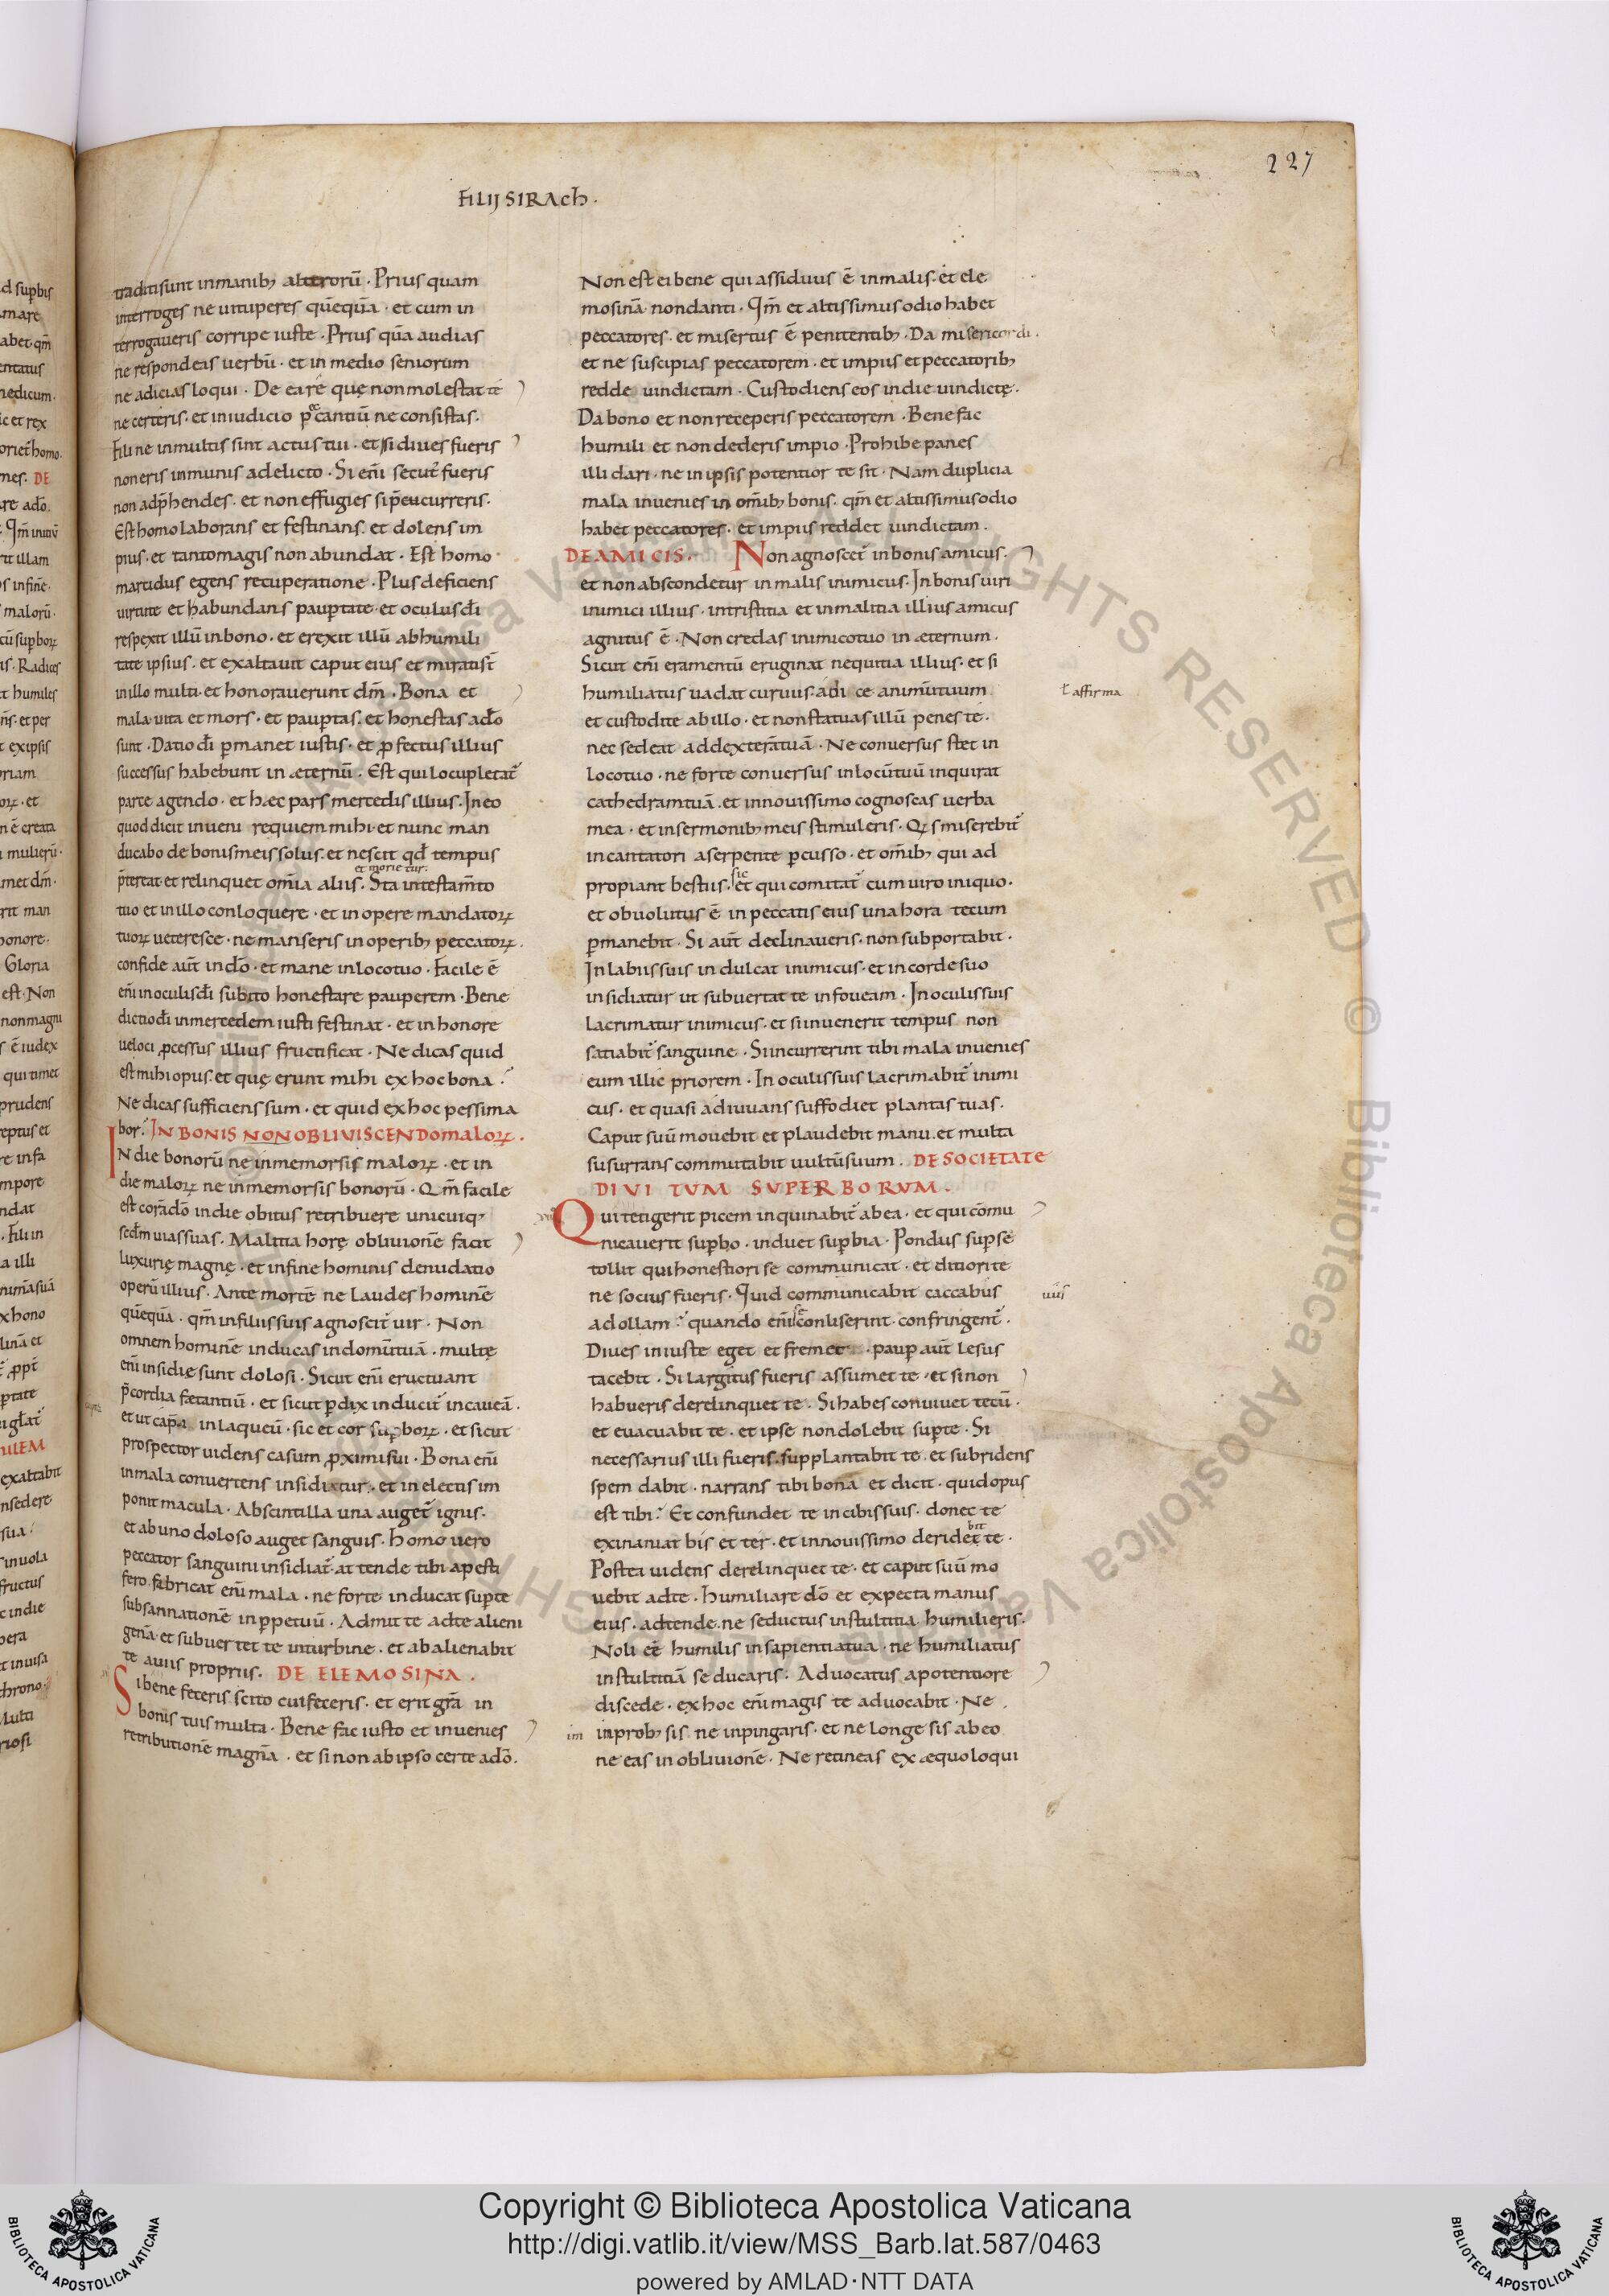 227
FILII SIRACh.
traditi sunt in manib; alterorū. Prius quam
interroges ne vituperes quēquā. et cum in
terrogaveris corripe iuste. Prius quā audias
ne respondeas uerbū. et in medio seniorum
ne adicias loqui. De ea re quę non molestat te
ne certeris. et in iudicio peccantiū ne consistas.
Fili ne in multis sint actus tui. et si dives fueris
non eris inmunis a delicto. Si eni secut' fueris
non adp̄hendes. et non effugies si p̄cucurreris.
Est homo laborans et festinans. et dolens im
pius. et tanto magis non abundat. Est homo
marcidus egens recuperatione. Plus deficiens
uirtute et habundans paup̄tate. et oculus dī
respexit illū in bono. et erexit illū ab humili
tate ipsius. et exaltauit caput eius et mirati sī
in illo multi. et honorauerunt dm̄. Bona et
mala. uita et mors. et paup̄tas. et honestas a do
sunt. Datio dī p̄manet iustis. et profectus illius
successus habebunt in æternū. Est qui locupletat̄
parte agendo. et hæc pars mercedis illius. In eo
quod dicit inueni requiem mihi. et nunc man
ducabo de bonis meis solus. et nescit qd̄ tempus
et morietur.
p̄tereat et relinquet omīa aliis. Sta in testam̄to
tuo et in illo conloquere. et in opere mandatoꝝ
tuoꝝ ueteresce. ne manseris in operib; peccatoꝝ.
confide aut̄ in dō. et mane in loco tuo. Facile ē
eni in oculis dī subito honestare pauperem. Bene
dictio dī in mercedem iusti festinat. et in honore
ueloci ꝓcessus illius fructificat. Ne dicas quid
est mihi opus. et quę erunt mihi ex hoc bona.
Ne dicas sufficiens sum. et quid ex hoc pessima
bor. IN BONIS NON OBLIVISCENDO maloꝝ.
In die bonorū ne inmemor sis maloꝝ. et in
die maloꝝ ne inmemor sis bonorū. Qm̄ facile
est corā dō in die obitus retribuere unicuiq;
scdm uias suas. Malitia horę obliuionē facit
luxurię magnę. et in fine hominis denudatio
operū illius. Ante mortē ne laudes hominē
quēquā. qm̄ in filiis suis agnoscit̄ uir. Non
omnem hominē inducas in domū tuā. multę
eni insidię sunt dolosi. Sicut eni eructuant
p̄cordia fętantiū. et sicut p̄dix inducit̄ in caueā.
et ut capra in laqueū. sic et cor sup̄boꝝ. et sicut
prospector uidens casum ꝓximi sui. Bona eni
in mala conuertens insidiatur. et in electis im
ponit macula. Ab scintilla una auget̄ ignis.
et ab uno doloso auget sanguis. homo uero
peccator sanguini insidiat̄. attende tibi a pesti
fero. fabricat eni mala. ne forte inducat sup̄ te
subsannationē in p̄petuū. Admitte ad te alieni
genā. et subuertet te in turbine. et abalienabit
te a uiis propriis. DE ELEMOSINA.
Si bene feceris scito cui feceris. et erit grā in
bonis tuis multa. Bene fac iusto et inuenies
retributionē magnā. et si non ab ipso certe a dō.
Non est ei bene qui assiduus ē in malis. et ele
mosinā non danti. Qm̄ et altissimus odio habet
peccatores. et misertus ē penitentib;. Da misericordi.
et ne suscipias peccatorem. et impiis et peccatorib;
redde uindictam. Custodiens eos in die uindictę.
Da bono et non receperis peccatorem. Bene fac
humili et non dederis impio. Prohibe panes
illi dari. ne in ipsis potentior te sit. Nam duplicia
mala inuenies in omīb; bonis. qm̄ et altissimus odio
habet peccatores. et impiis reddet uindictam.
DE AMICIS. Non agnoscet̄ in bonis amicus.
et non abscondetur in malis inimicus. In bonis uiri
inimici illius. in tristitia et in malitia illius amicus
agnitus ē. Non credas inimico tuo in æternum.
Sicut eni eramentū eruginat nequitia illius. et si
humiliatus uadat curuus. adi ce animū tuum
ł affirma
et custodi te ab illo. et non statuas illū penes te.
nec sedeat ad dexterā tuā. Ne conuersus stet in
loco tuo. ne forte conuersus in locū tuū inquirat
cathedram tuā. et in nouissimo cognoscas uerba
mea. et in sermonib; meis stimuleris. Qꝫs miserebit̄
incantatori a serpente p̄cusso. et omīb; qui ad
propiant bestiis. sic et qui comitat̄ cum uiro iniquo.
et obuolutus ē in peccatis eius una hora tecum
p̄manebit. Si aut̄ declinaueris. non subportabit.
In labiis suis indulcat inimicus. et in corde suo
insidiatur ut subuertat te in foueam. In oculis suis
lacrimatur inimicus. et si inuenerit tempus non
satiabit̄ sanguine. Si incurrerint tibi mala inuenies
eum illic priorem. In oculis suis lacrimabit̄ inimi
cus. et quasi adiuuans suffodiet plantas tuas.
Caput suū mouebit et plaudebit manu. et multa
susurrans commutabit uultū suum. DE SOCIETATE
DIVITUM SUPERBORUM.
Qui tetigerit picem inquinabit̄ ab ea. et qui cōmu
nicauerit sup̄bo. induet sup̄bia. Pondus sup̄ se
tollit qui honestiori se communicat. et ditiori te
ne socius fueris. Quid communicabit caccabus
ad ollam. quando eni se conliserint. confringent̄.
Diues iniuste eget et fremet. paup̄ aut̄ lesus
tacebit. Si largitus fueris assumet te. et si non
habueris derelinquet te. Si habes conuiuet tecū.
et euacuabit te. et ipse non dolebit sup̄ te. Si
necessarius illi fueris. supplantabit te. et subridens
spem dabit. narrans tibi bona et dicit. quid opus
est tibi. Et confundet te in cibis suis. donec te
exinaniat bis et ter. et in nouissimo deridet te.
bit
Postea uidens derelinquet te. et caput suū mo
uebit ad te. humiliare dō et expecta manus
eius. adtende. ne seductus in stultitia humilieris.
Noli eē humilis in sapientia tua. ne humiliatus
in stultitiā seducaris. Aduocatus a potentiore
discede. ex hoc eni magis te aduocabit. Ne
im inprob; sis. ne inpingaris. et ne longe sis ab eo
ne eas in obliuionē. Ne retineas ex æquo loqui
Copyright © Biblioteca Apostolica Vaticana
http://digi.vatlib.it/view/MSS_Barb.lat.587/0463
powered by AMLAD·NTT DATA